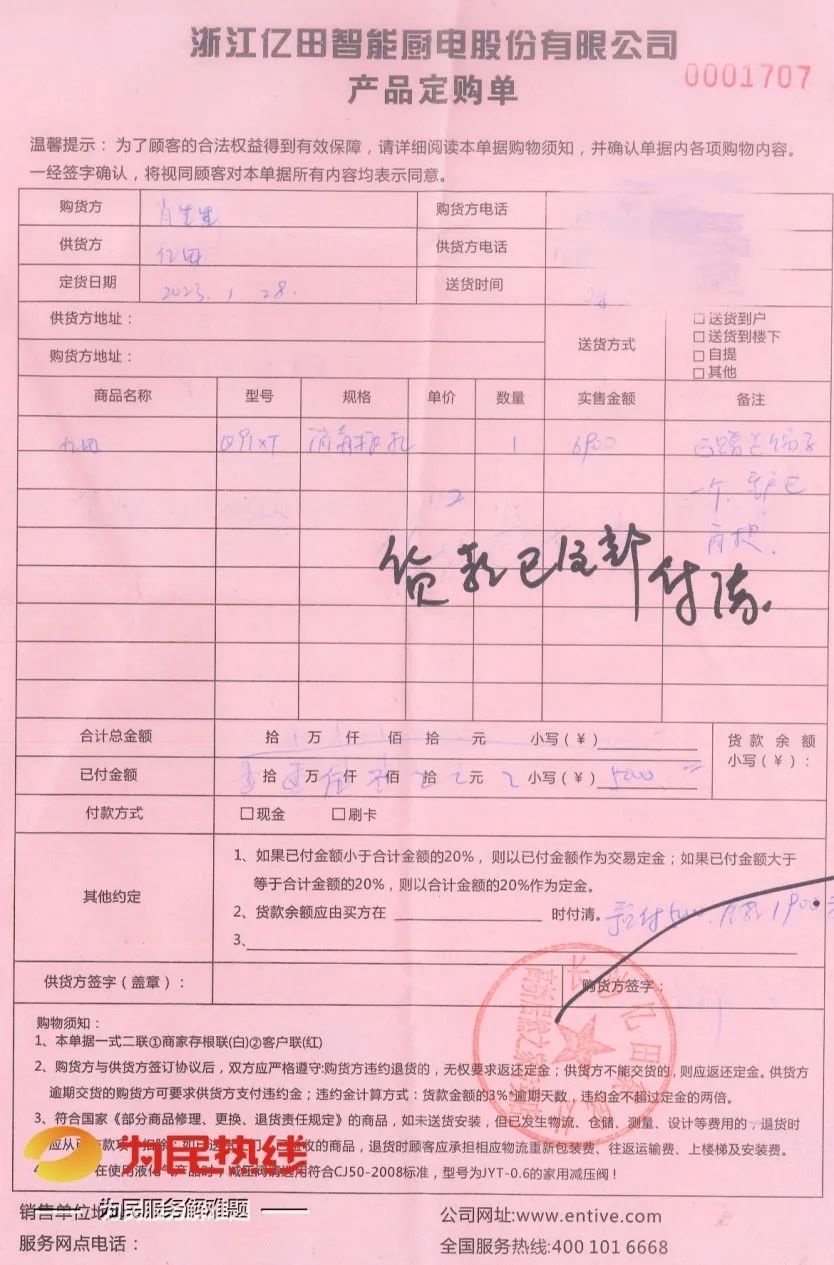 浙江亿田智能厨电股份有限公司
产品定购单
0001707
温馨提示：为了顾客的合法权益得到有效保障，请详细阅读本单据购物须知，并确认单据内各项购物内容。
一经签字确认，将视同顾客对本单据所有内容均表示同意。
购货方 肖先生 购货方电话
供货方 亿田 供货方电话
定货日期 2023. 1 28. 送货时间
供货方地址：
购货方地址：
送货方式
□送货到户
□送货到楼下
□自提
□其他
商品名称 型号 规格 单价 数量 实售金额 备注
亿田 1 6900
一个. 客户已
自提.
货款已全部付清.
合计总金额 拾 万 仟 佰 拾 元 小写（¥）
货款余额
小写（¥）：
已付金额 拾 万 仟 佰 拾 元 小写（¥） 5000
付款方式 □现金 □刷卡
其他约定
1、如果已付金额小于合计金额的20%，则以已付金额作为交易定金；如果已付金额大于
等于合计金额的20%，则以合计金额的20%作为定金。
2、货款余额应由买方在 时付清。 1900
3、
供货方签字（盖章）： 购货方签字：
购物须知：
1、本单据一式二联①商家存根联(白)②客户联(红)
2、购货方与供货方签订协议后，双方应严格遵守:购货方违约退货的，无权要求返还定金；供货方不能交货的，则应返还定金。供货方
逾期交货的购货方可要求供货方支付违约金；违约金计算方式：货款金额的3%*逾期天数，违约金不超过定金的两倍。
3、符合国家《部分商品修理、更换、退货责任规定》的商品，如未送货安装，但已发生物流、仓储、测量、设计等费用的，退货时
应从已付款项 扣除； 收的商品，退货时顾客应承担相应物流重新包装费、往返运输费、上楼梯及安装费。
4、 在使用液化气产品时，减压阀请选用符合CJ50-2008标准，型号为JYT-0.6的家用减压阀！
为民热线
为民服务解难题
销售单位地
公司网址:www.entive.com
服务网点电话：
全国服务热线:400 101 6668